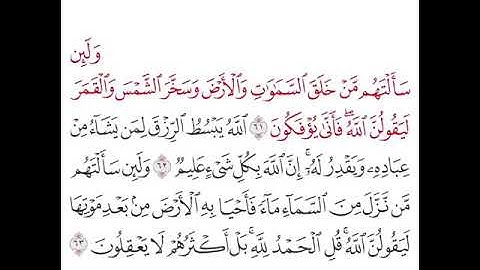 وَلَئِن
سَأَلْتَهُم مَّنْ خَلَقَ ٱلسَّمَٰوَٰتِ وَٱلْأَرْضَ وَسَخَّرَ ٱلشَّمْسَ وَٱلْقَمَرَ
لَيَقُولُنَّ ٱللَّهُ ۖ فَأَنَّىٰ يُؤْفَكُونَ ٦١ ٱللَّهُ يَبْسُطُ ٱلرِّزْقَ لِمَن يَشَآءُ مِنْ
عِبَادِهِۦ وَيَقْدِرُ لَهُۥٓ ۚ إِنَّ ٱللَّهَ بِكُلِّ شَىْءٍ عَلِيمٌ ٦٢ وَلَئِن سَأَلْتَهُم
مَّن نَّزَّلَ مِنَ ٱلسَّمَآءِ مَآءً فَأَحْيَا بِهِ ٱلْأَرْضَ مِنۢ بَعْدِ مَوْتِهَا
لَيَقُولُنَّ ٱللَّهُ ۚ قُلِ ٱلْحَمْدُ لِلَّهِ ۚ بَلْ أَكْثَرُهُمْ لَا يَعْقِلُونَ ٦٣